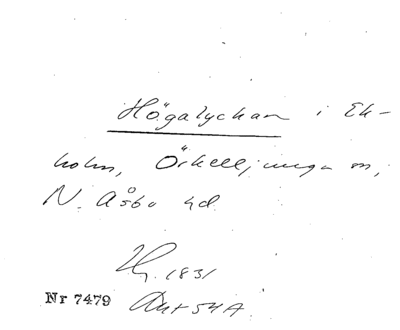 Högalyckan i Ek-
holm, Örkelljunga sn,
N. Åsbo hd
Hy. 1831
Nr 7479 Akt 54A.